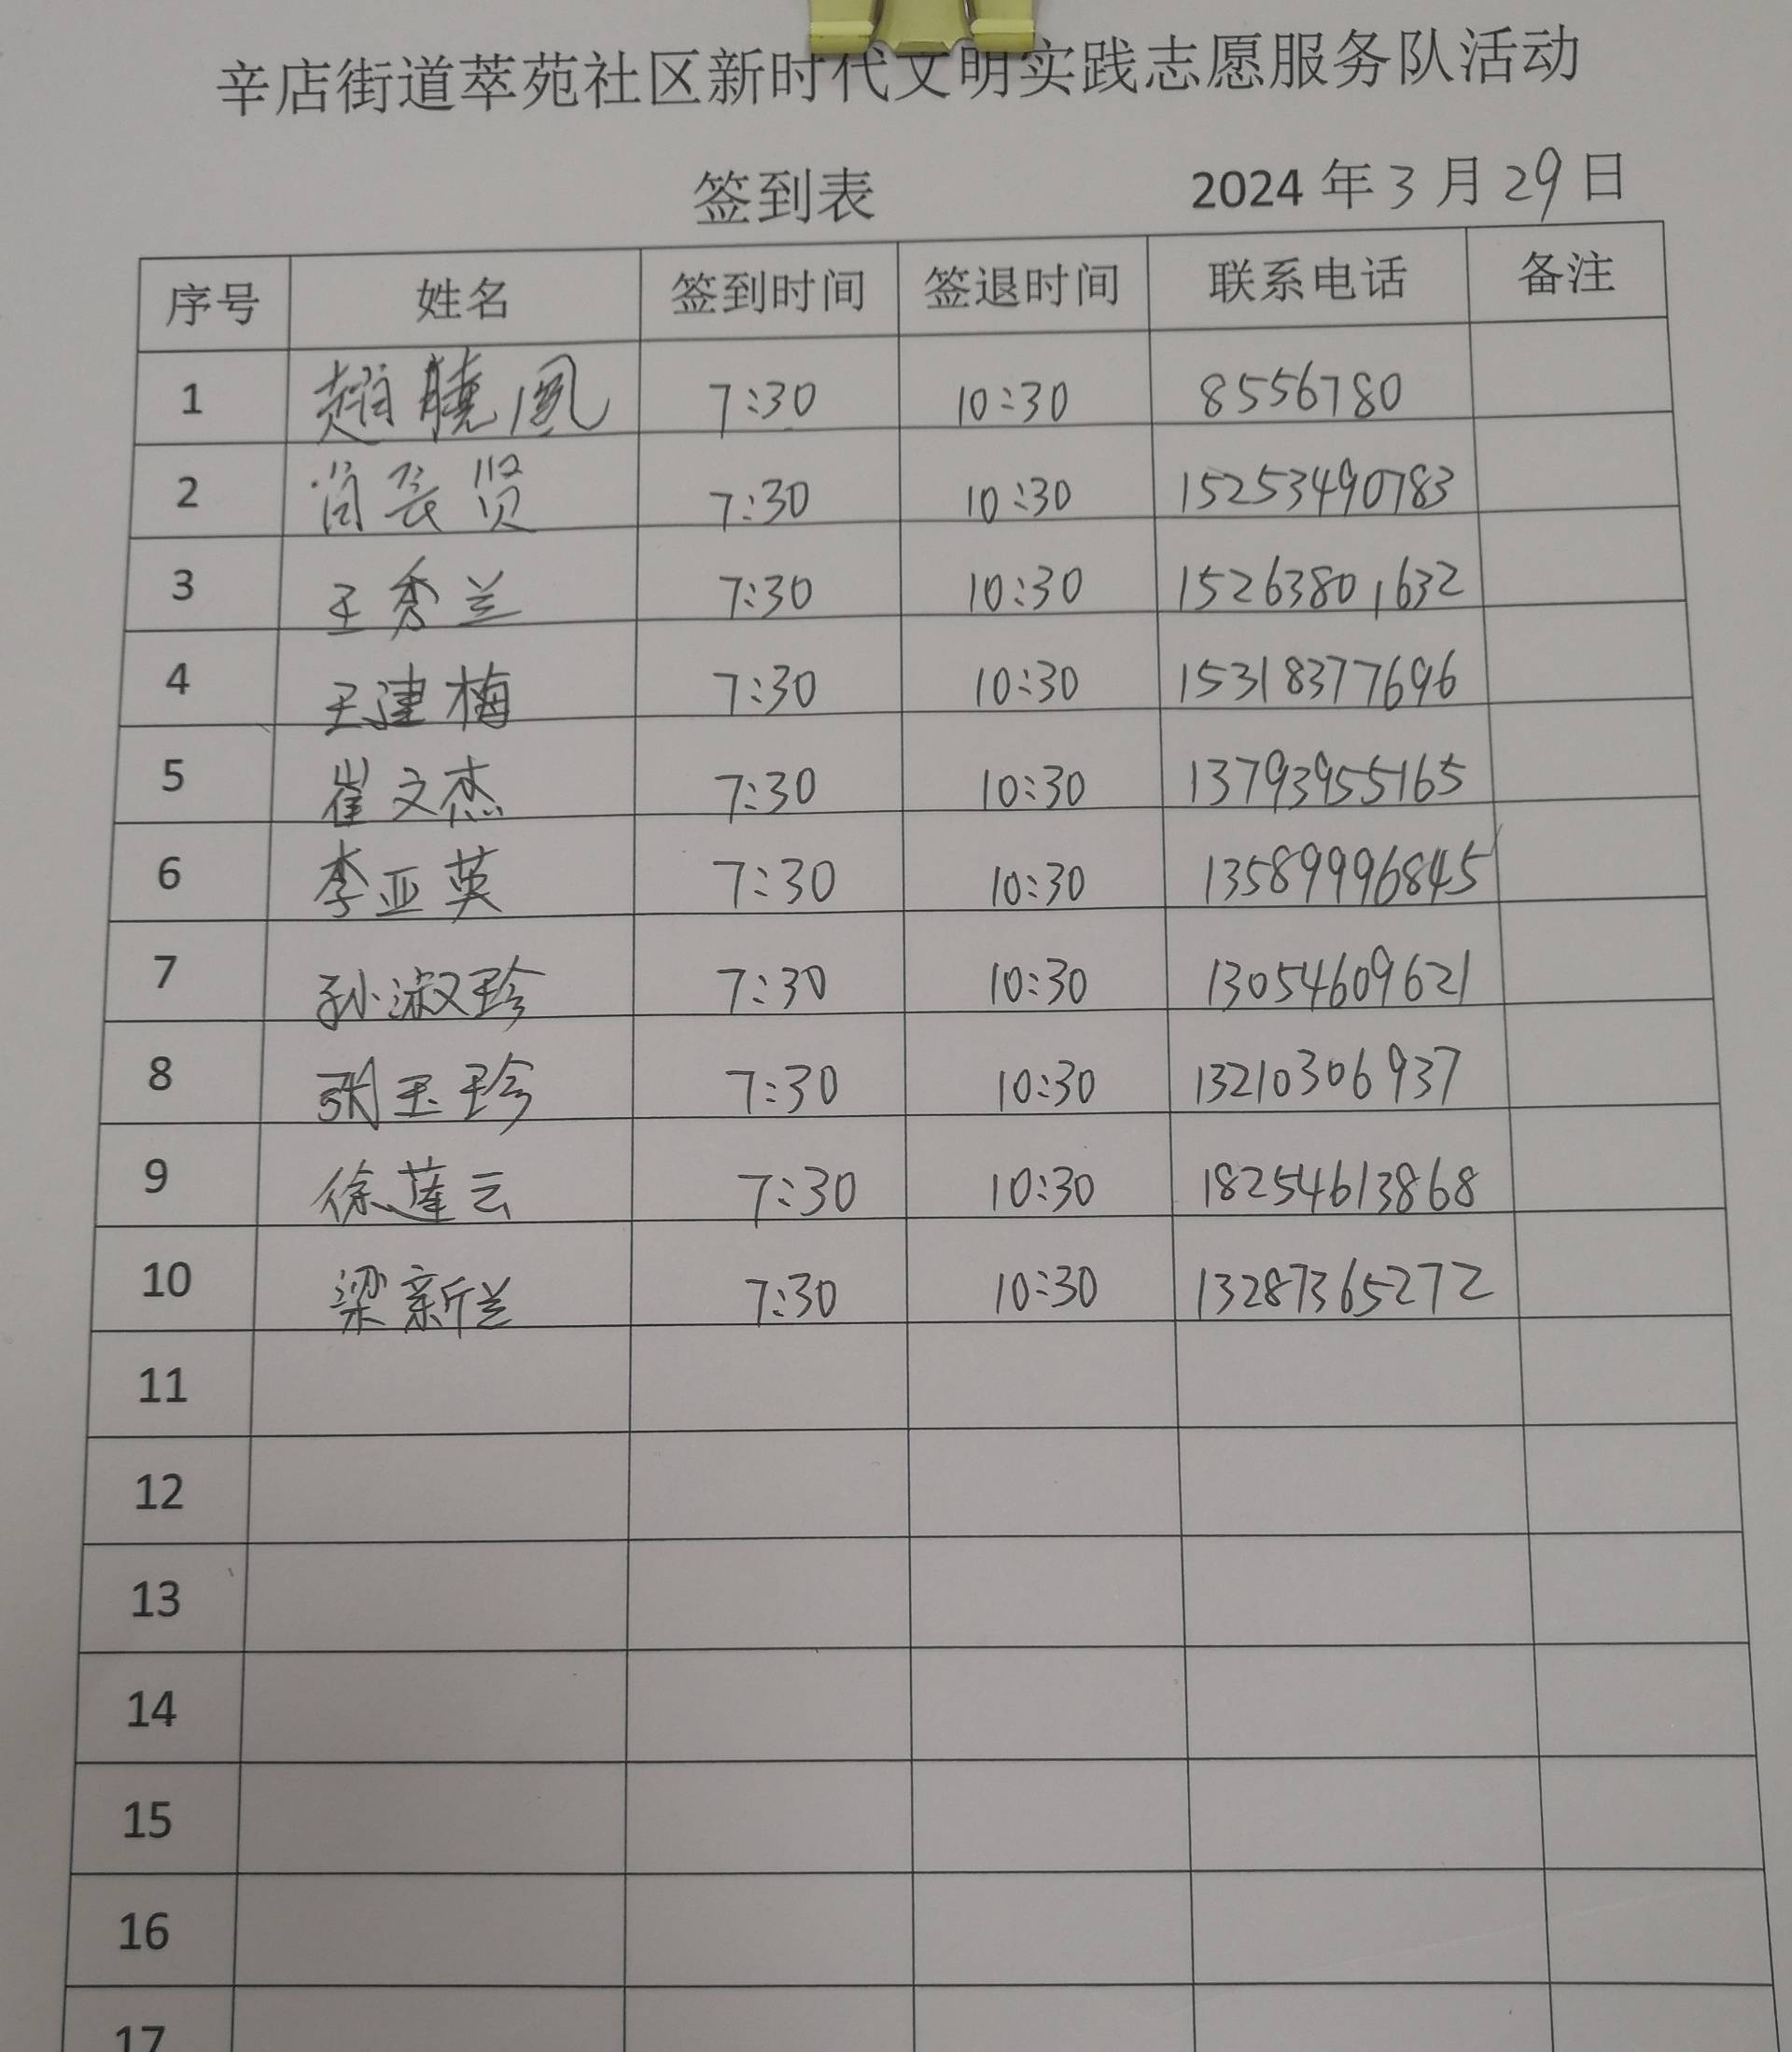 辛店街道萃苑社区新时代文明实践志愿服务队活动
签到表 2024年3月29日
序号 姓名 签到时间 签退时间 联系电话 备注
1 7:30 10:30 8556780
2 7:30 10:30 15253490783
3 王秀兰 7:30 10:30 15263801632
4 王建梅 7:30 10:30 15318377696
5 崔文杰 7:30 10:30 13793955165
6 李亚英 7:30 10:30 13589996845
7 孙淑珍 7:30 10:30 13054609621
8 张玉珍 7:30 10:30 13210306937
9 徐莲云 7:30 10:30 18254613868
10 梁新兰 7:30 10:30 13287365272
11
12
13
14
15
16
17